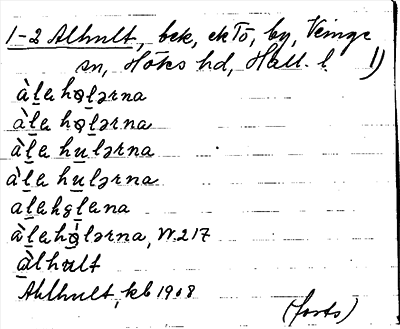 1-2 Alhult, bek, ek Tö, by, Veinge
sn, Höks hd, Hall. l. 1)
àl̠a ho̠l̠ərna
àl̠a ho̠l̠ərna
àl̠a hu̠lərna
àl̠a hu̠lərna
al̠ahol̠ana
àl̠aho̠lərna, W.217
àlhult
Ahlhult, kb 1908
(forts)